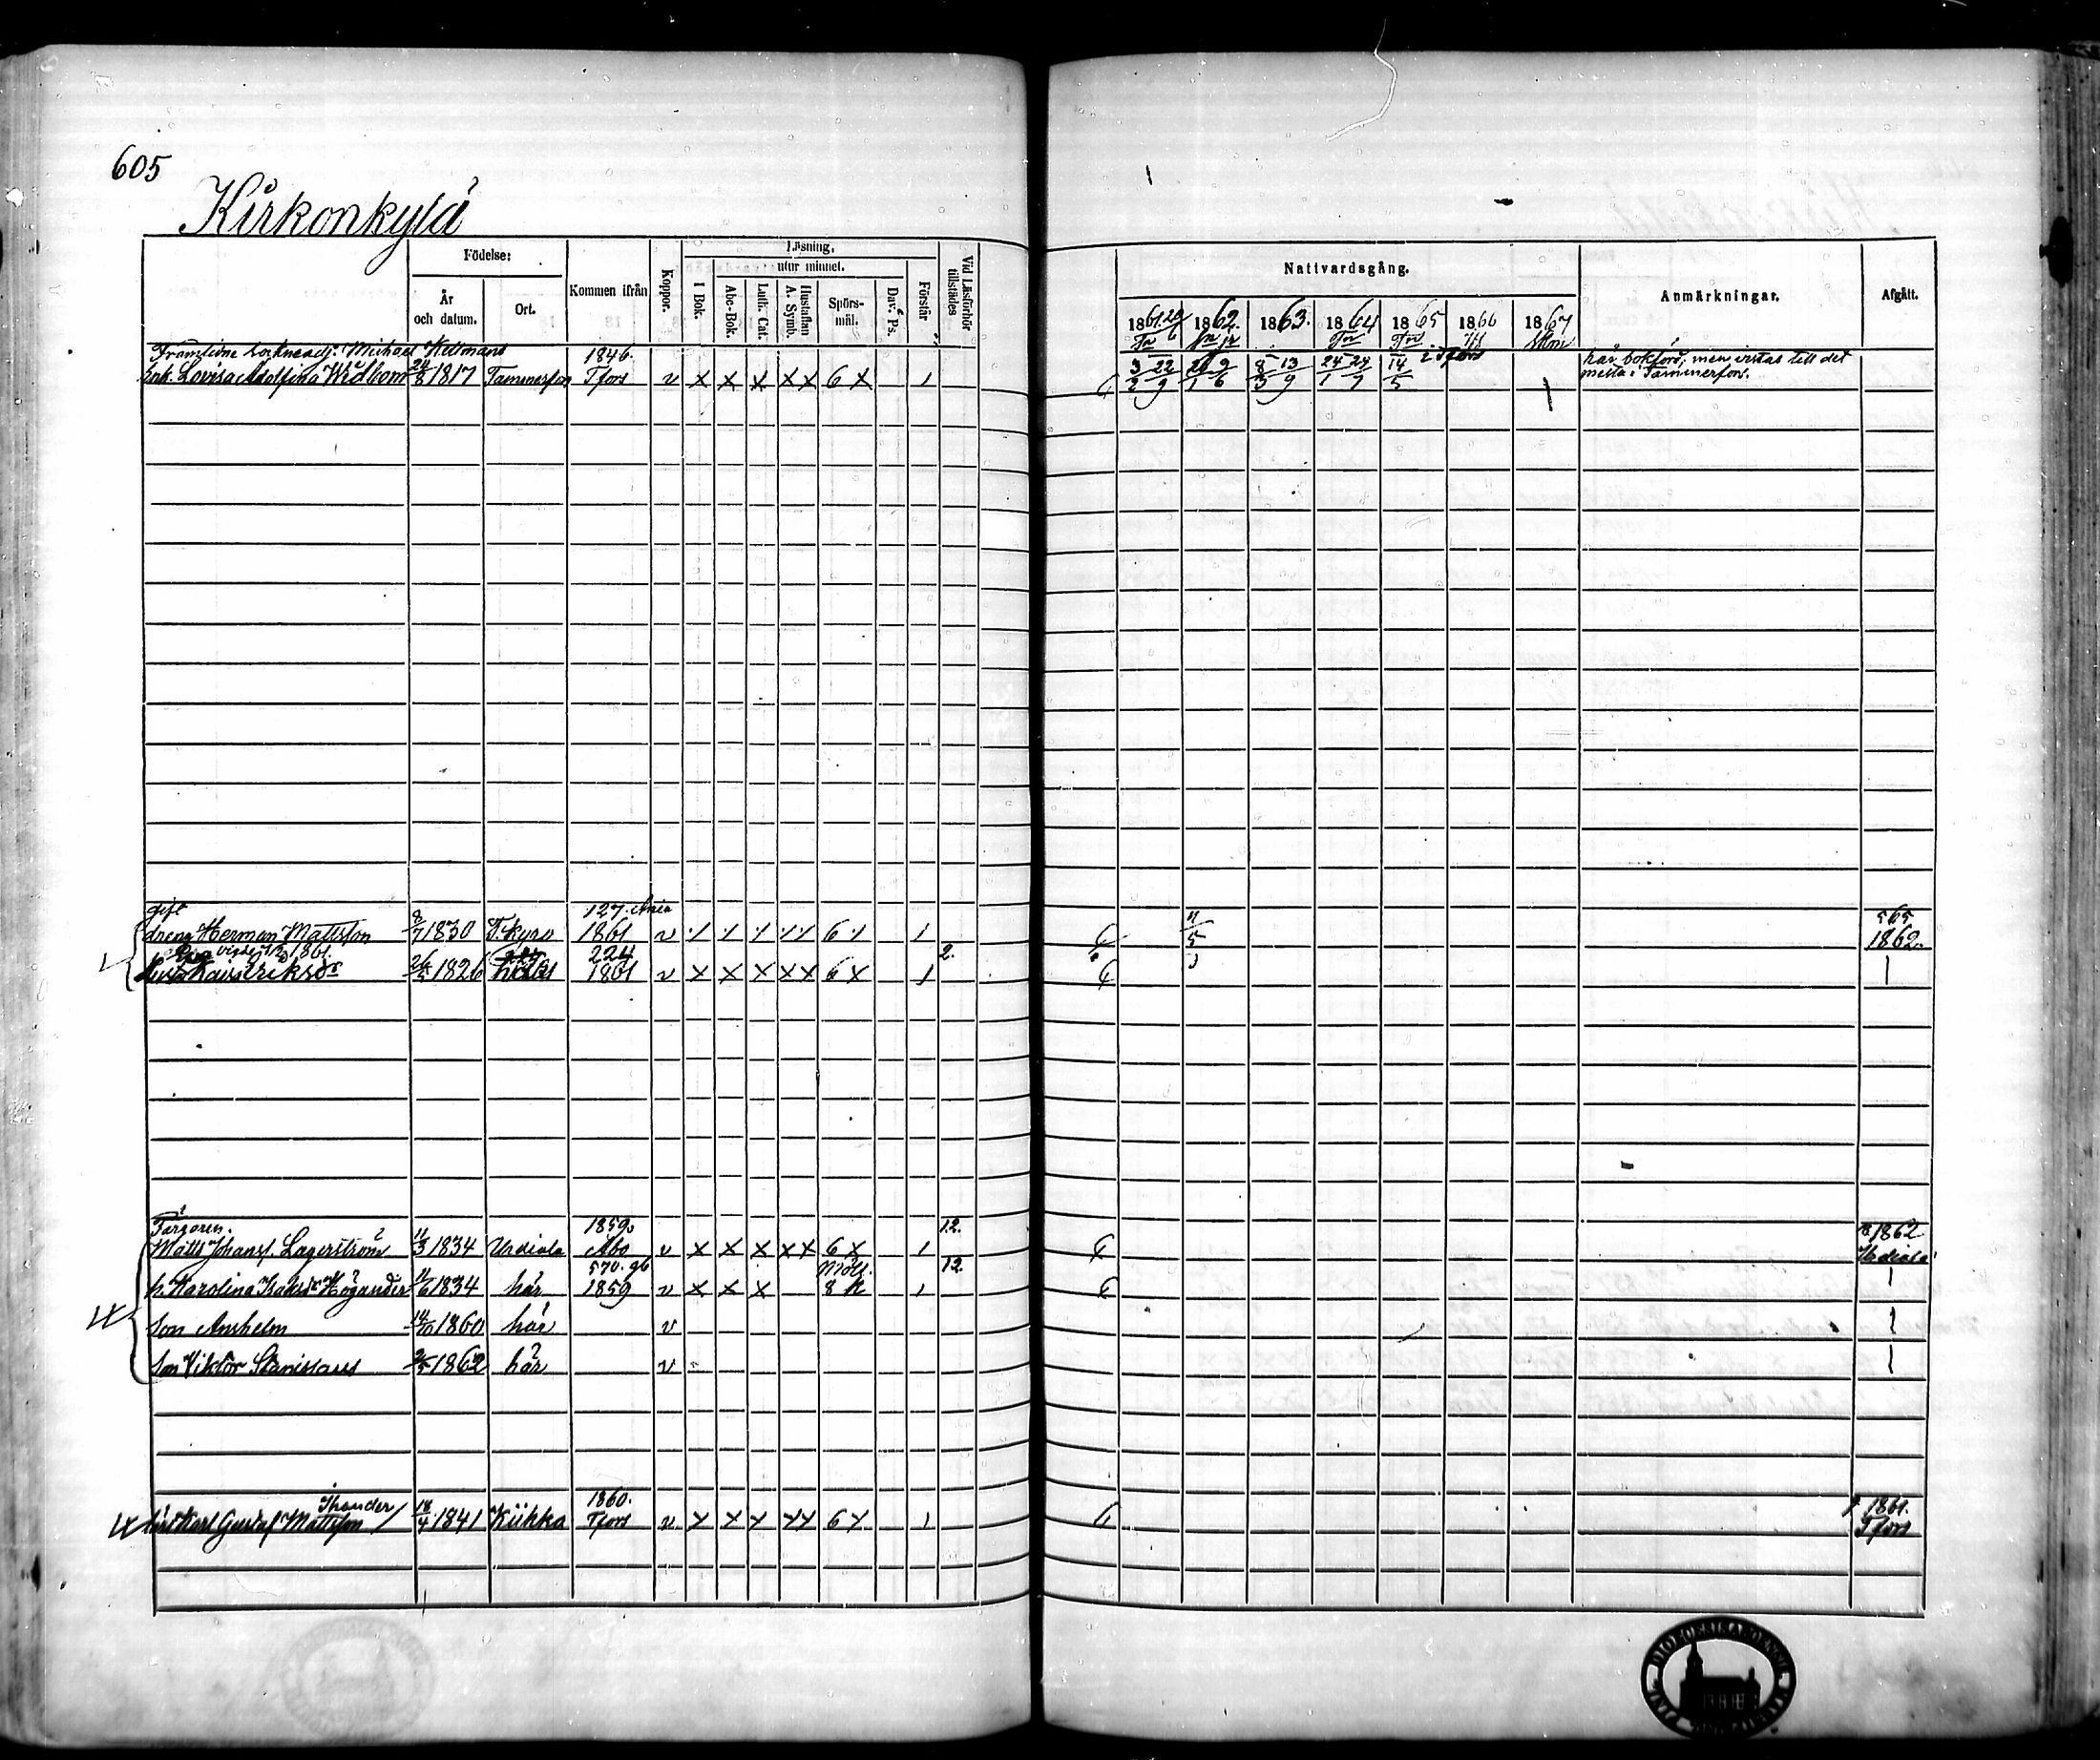 605
Kirkonkylä
Födelse: Kommen ifrån Koppor. Läsning, Vid Läsförhör tillstädes
År och datum. Ort. I Bok. utur minnet. Förstår
Abc-Bok. Luth. Cat. Hustaflan A. Symb. Spörsmål. Dav. Ps.
Nattvardsgång. Anmärkningar. Afgått.
1861 1862. 1863. 1864 1865 1866 1867
Framlidne Sockneadj: Michael Hellmans 1846.
enk. Lovisa Adolfina Widbom 24/8 1817 Tammerfors Tfors v x x x x x 6 x 1
3/2 22/9 8/3 13/9 24/1 24/7 14/5
här bokförd, men vistas till det
mesta i Tammerfors.
gift 127. 565
dreng Herman Mattsson 8/7 1830 T.kyro 1861 v 6 1 11/5 1862.
vigde 1861. 224 2.
Kaisa Eriksdr 26/ 1826 1861 v x x x x x 6 x 1
Farfaren. 1859. 12. 1862
Matts Johanss. Lagerström 11/3 1834 Urdiala Åbo v x x x x x 6 x 1 Urdiala
570. 12
h. Karolina Isaksdr Högander 11/6 1834 här 1859 v x x x 8 1
Son Anshelm 14/10 1860 här v
Son Viktor Stanislaus 2/5 1862 här v
Ihander 1860. 1861.
Karl Gustaf Mattsson 18/4 1841 Kiikka Tfors v x x x x x 6 x 1 Tfors